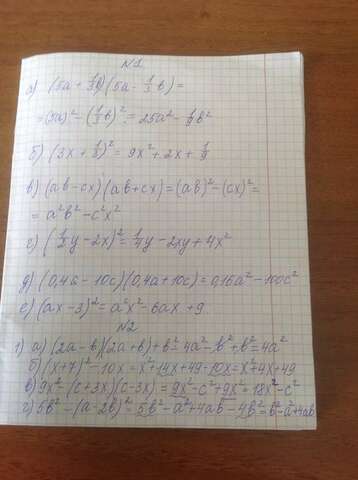 N1
а) (5a + 1/3b)(5a - 1/3 b) =
= (5a)² - (1/3 b)² = 25a² - 1/9 b²
б) (3x + 1/3)² = 9x² + 2x + 1/9
в) (ab - cx)(ab + cx) = (ab)² - (cx)² =
= a²b² - c²x²
г) (1/2 y - 2x)² = 1/4 y - 2xy + 4x²
д) (0,4a - 10c)(0,4a + 10c) = 0,16a² - 100c²
е) (ax - 3)² = a²x² - 6ax + 9
N2
1) а) (2a - b)(2a + b) + b² = 4a² - b² + b² = 4a²
б) (x + 7)² - 10x = x² + 14x + 49 - 10x = x² + 4x + 49
в) 9x² - (c + 3x)(c - 3x) = 9x² - c² + 9x² = 18x² - c²
г) 5b² - (a - 2b)² = 5b² - a² + 4ab - 4b² = b² - a² + 4ab